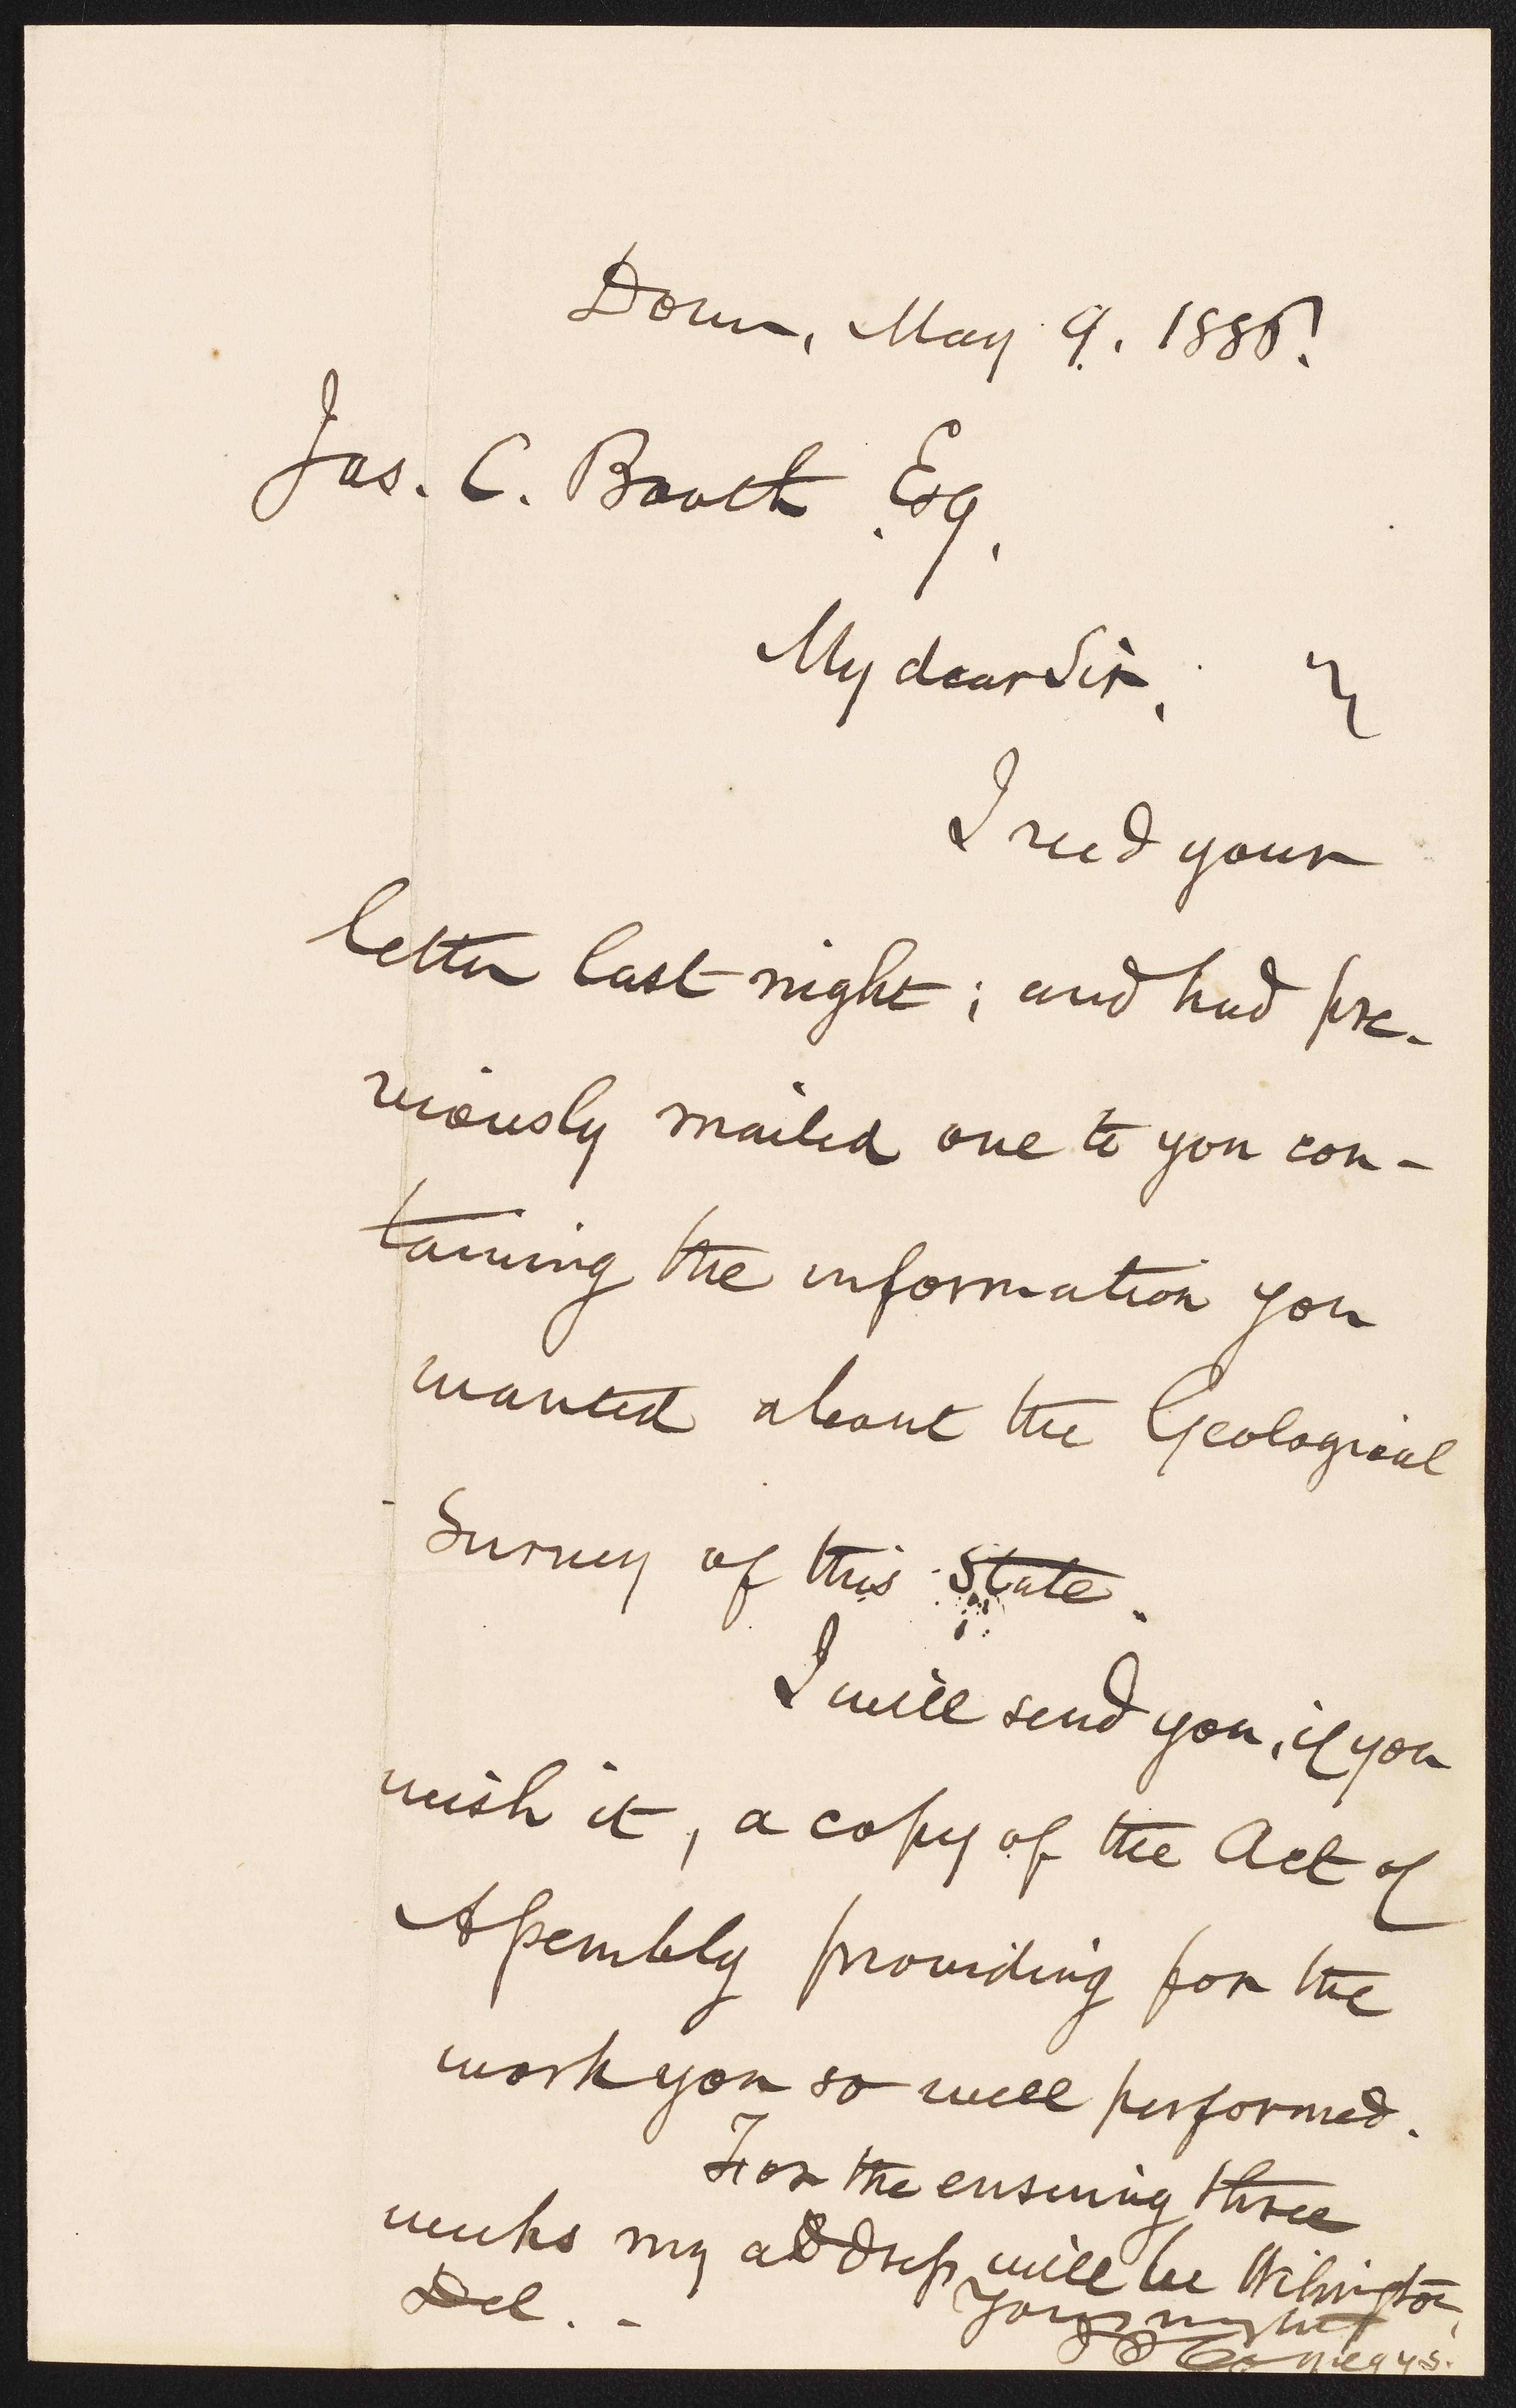 Dover, May 9. 1885.
Jas. C. Booth Esq.
My dear Sir,
I recd your
letter last night; and had pre-
viously mailed one to you con-
taining the information you
wanted about the Geological
Survey of this State.
I will send you, if you
wish it, a copy of the Act of
Assembly providing for the
work you so well performed.
For the ensuing three
weeks my address will be Wilmington,
Del. -
Yours
Comegys.